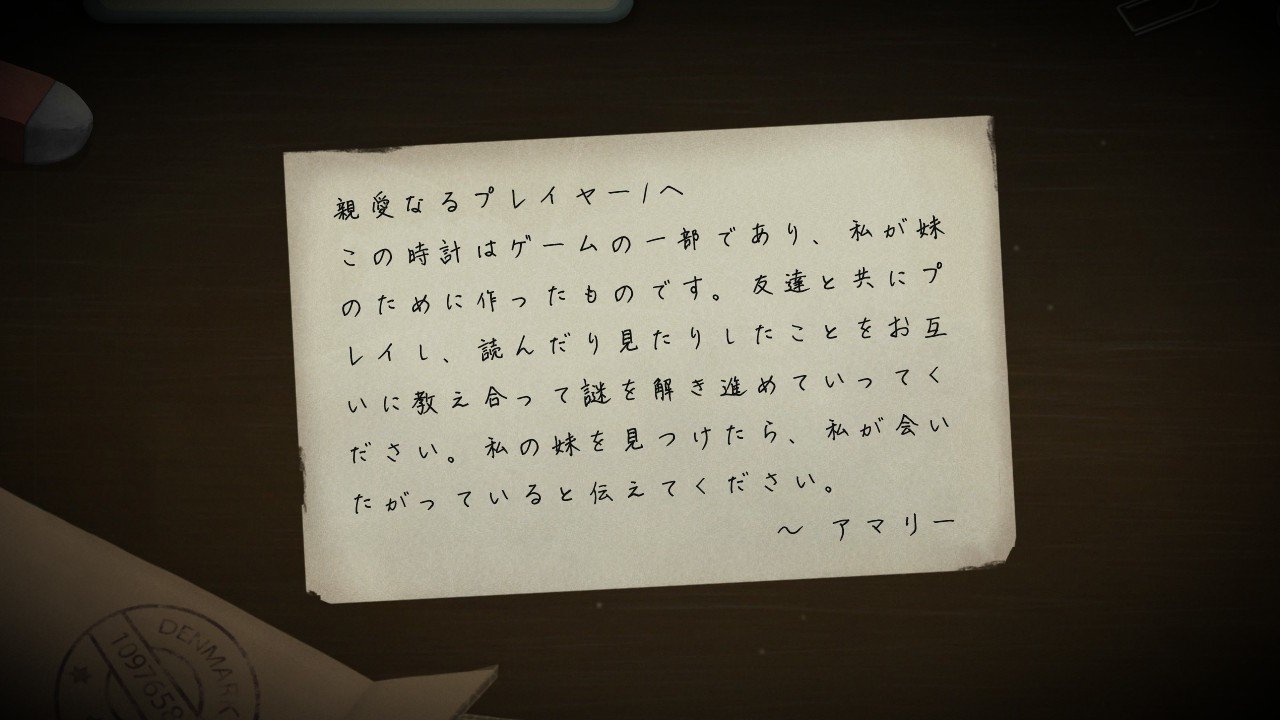 親愛なるプレイヤー1へ
この時計はゲームの一部であり、私が妹
のために作ったものです。友達と共にプ
レイし、読んだり見たりしたことをお互
いに教え合って謎を解き進めていってく
ださい。私の妹を見つけたら、私が会い
たがっていると伝えてください。
～ アマリー
DENMAR
1097658